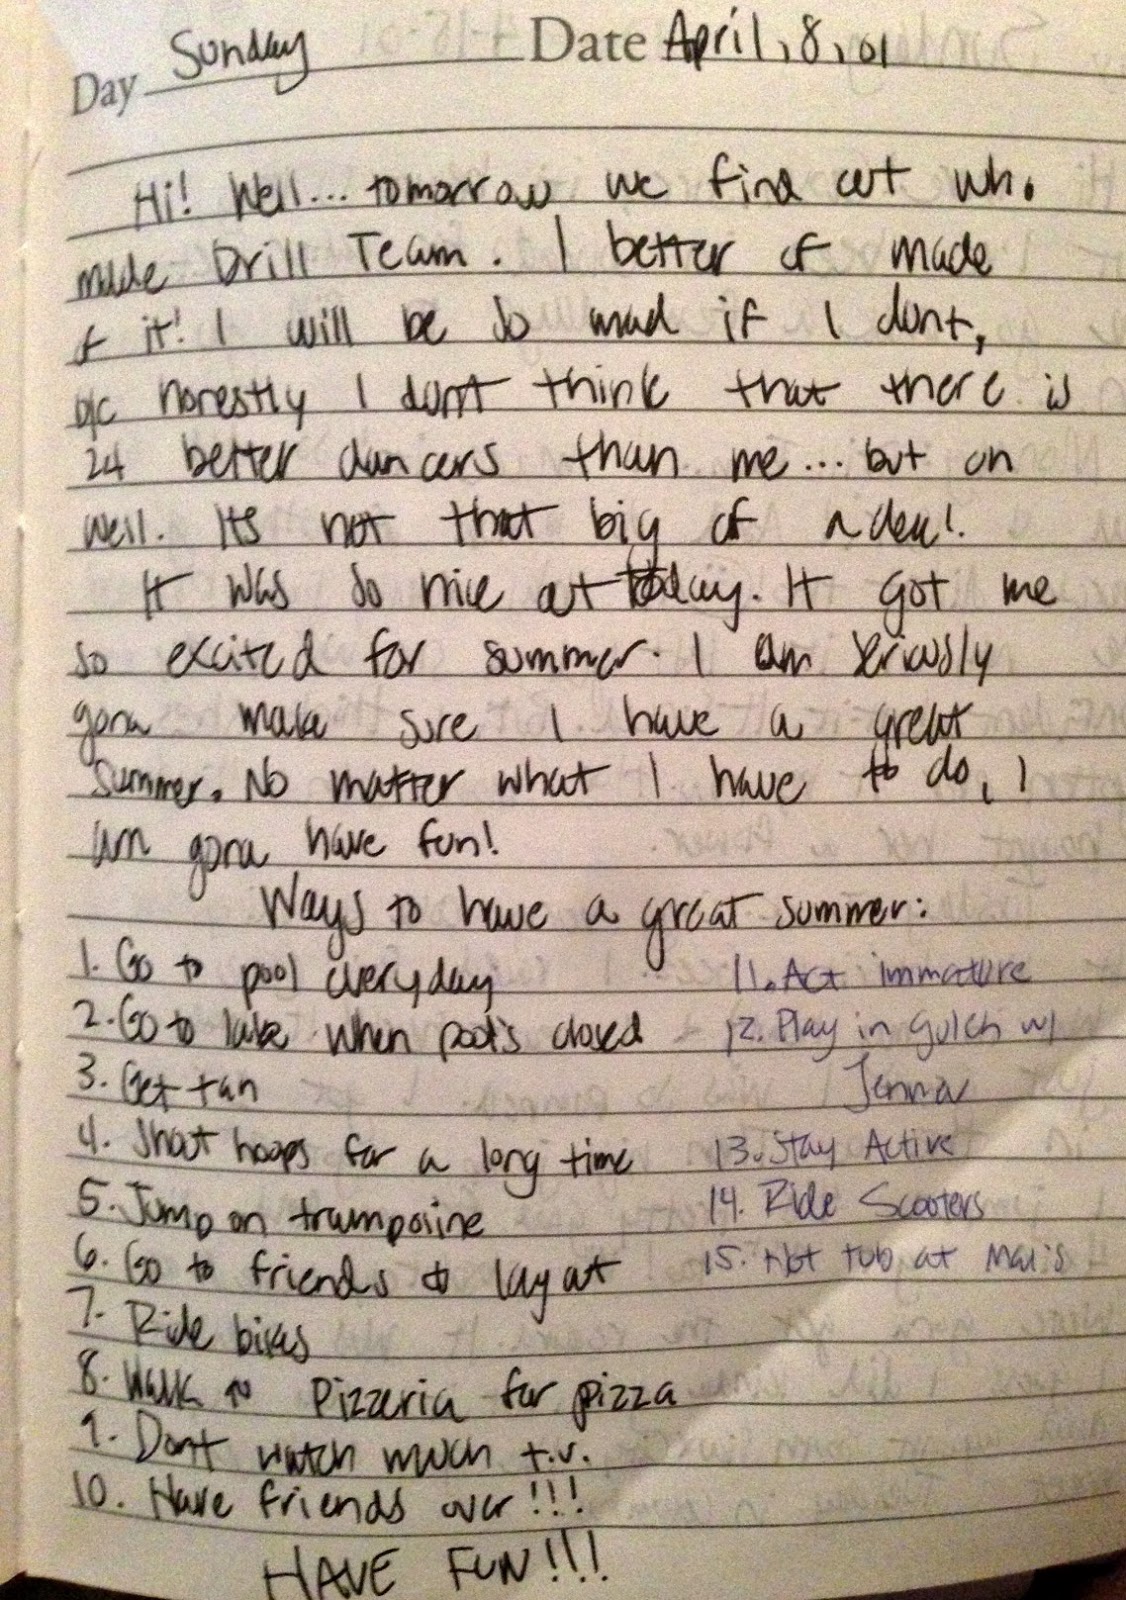 Day Sunday Date April, 8, 01
Hi! Well... tomorrow we find out who
made Drill Team. I better of made
it! I will be so mad if I dont,
b/c honestly I dont think that there is
24 better dancers than me... but oh
well. Its not that big of a deal.
It was so nice out today. It got me
so excited for summer. I am seriously
gona make sure I have a great
summer. No matter what I have to do, I
am gona have fun!
Ways to have a great summer:
1. Go to pool everyday
2. Go to lake when pool's closed
3. Get tan
4. Shoot hoops for a long time
5. Jump on trampoline
6. Go to friends to lay out
7. Ride bikes
8. Walk to Pizzeria for pizza
9. Dont watch much t.v.
10. Have friends over!!!
11. Act immature
12. Play in gulch w/
Jenna
13. Stay Active
14. Ride Scooters
15. Hot tub at
HAVE FUN!!!